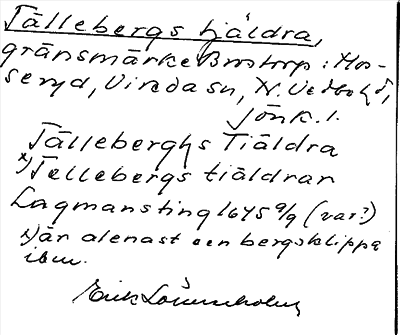 Tällebergs tjäldra,
gränsmärke Brostorp: Mos-
seryd, Vindasn, N. Vedbo hd,
Jönk. l.
Tälleberghs Tiäldra
x) Tellebergs tiäldrar
Lagmansting 1675 9/9 (var?)
x) är alenast een bergsklippa
ibm.
Erik